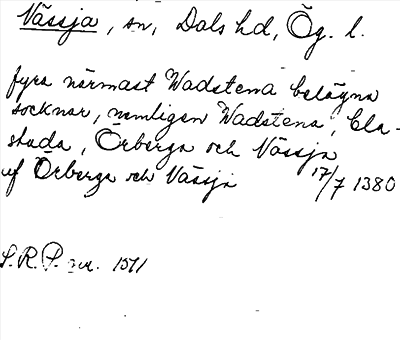 Vässja, sn, Dals hd, Ög. l.
fyra närmast Wadstena belägna
socknar, namligen Wadstena, Ela-
stada, Örberga och Vässja
uf Örberga och Vässja 17/7 1380
S.R.P. nr. 1571